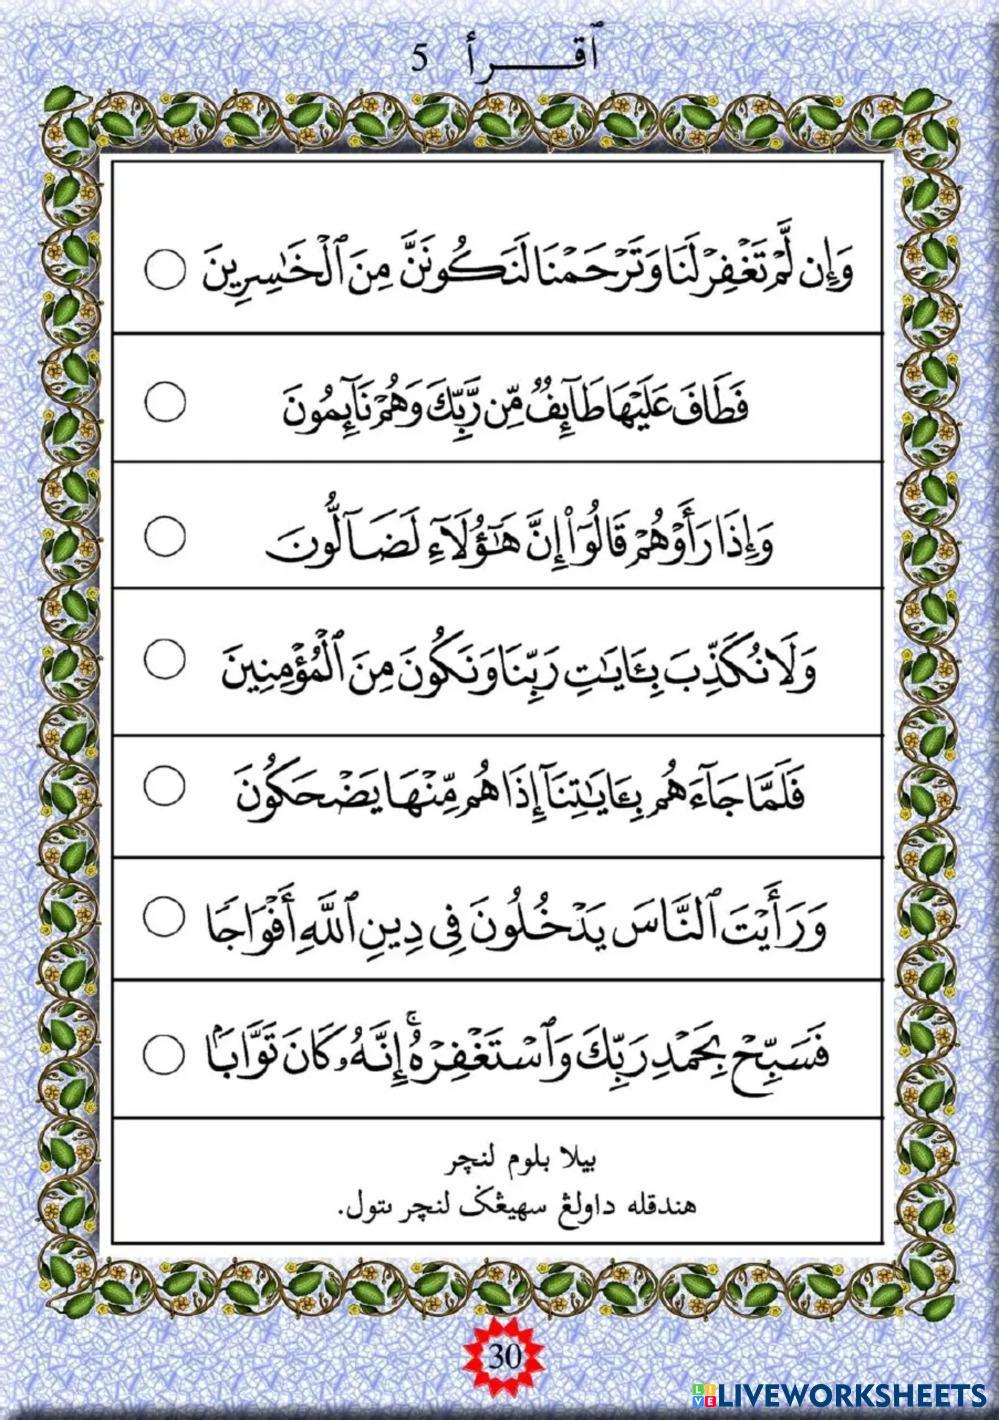 ٱقــــرأ 5
وَإِن لَّمْ تَغْفِرْ لَنَا وَتَرْحَمْنَا لَنَكُونَنَّ مِنَ ٱلْخَٰسِرِينَ
فَطَافَ عَلَيْهَا طَآئِفٌ مِّن رَّبِّكَ وَهُمْ نَآئِمُونَ
وَإِذَا رَأَوْهُمْ قَالُوٓا۟ إِنَّ هَٰٓؤُلَآءِ لَضَآلُّونَ
وَلَا نُكَذِّبَ بِـَٔايَٰتِ رَبِّنَا وَنَكُونَ مِنَ ٱلْمُؤْمِنِينَ
فَلَمَّا جَآءَهُم بِـَٔايَٰتِنَآ إِذَا هُم مِّنْهَا يَضْحَكُونَ
وَرَأَيْتَ ٱلنَّاسَ يَدْخُلُونَ فِى دِينِ ٱللَّهِ أَفْوَاجًا
فَسَبِّحْ بِحَمْدِ رَبِّكَ وَٱسْتَغْفِرْهُ ۚ إِنَّهُۥ كَانَ تَوَّابًۢا
بيلا بلوم لنچر
هندقله داولڠ سهيڠݢ لنچر بتول.
30
LIVEWORKSHEETS